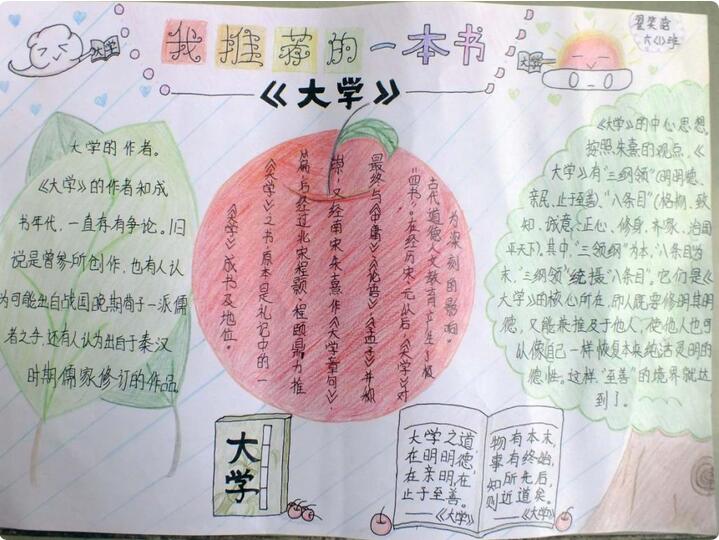 我推荐的一本书
《大学》
大学
大学
大学的作者。
《大学》的作者和成
书年代，一直存有争论。旧
说是曾参所创作，也有人认
为可能出自战国晚期尚于一派儒
者之手，还有人认为出自于秦汉
时期儒家修订的作品
《大学》成书及地位。
《大学》之书原本是礼记中的一
经过北宋程颢 程颐 力推
又经南宋朱熹作《大学章句》，
最终与《中庸》《论语》《孟子》并称
“四书”。在经历宋、元以后，《大学》对
古代道德人文教育产生了极
为深刻的影响。
《大学》的中心思想。
按照朱熹的观点，《
大学》有“三纲领”（明明德、
亲民、止于至善）、“八条目”（格物、致
知、诚意、正心、修身、齐家、治国
平天下）。其中，“三领纲”为本，“八条目”为
末，“三纲领”统摄“八条目”。它们是《
大学》的核心所在，即人既要修明其明
德，又能兼推及于他人，使他人也可
以像自己一样恢复本来纯洁灵明的
德性。这样，“至善”的境界就达
到了。
大学
大学之道，
在明明德，
在亲明，在
止于至善。
——《大学》
物有本末，
事有终始，
知所先后，
则近道矣。
——《大学》